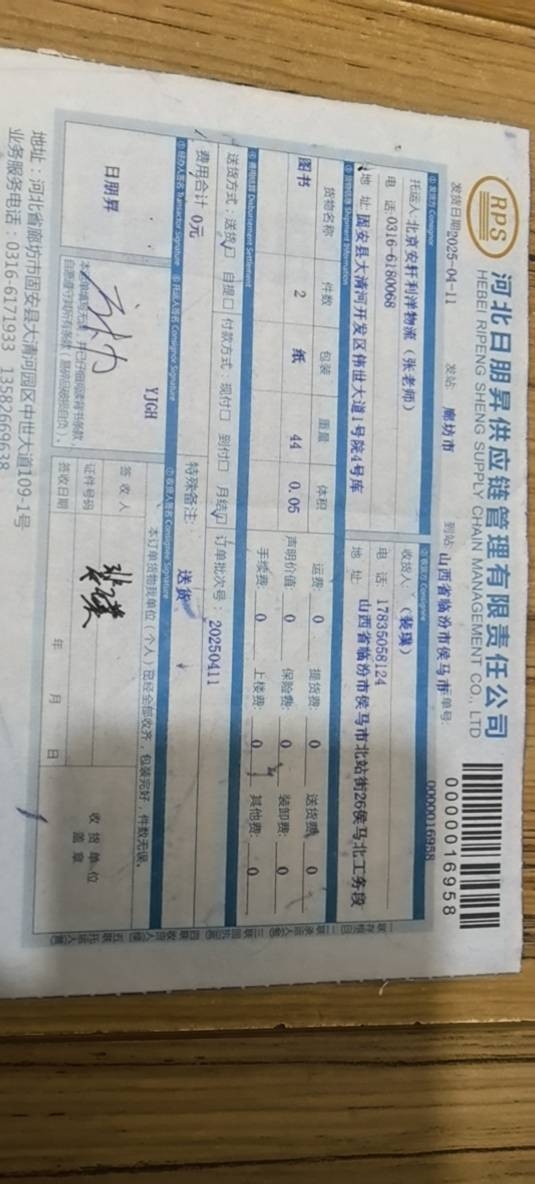 RPS
河北日朋昇供应链管理有限责任公司
HEBEI RIPENG SHENG SUPPLY CHAIN MANAGEMENT CO., LTD
0000016958
发货日期 2025-04-11 发站: 廊坊市 到站: 山西省临汾市侯马市 单号: 0000016958
①发货方 Consignor
②收货方 Consignee
托运人: 北京安轩利洋物流 (张老师)
收货人: (裴璞)
电 话: 0316-6180068
电 话: 17835058124
地 址: 固安县大清河开发区伟世大道1号院4号库
地 址: 山西省临汾市侯马市北站街26侯马北工务段
③货物信息 Shipment Information
货物名称 件数 包装 重量 体积
图书 2 纸 44 0.05
运费: 0 提货费: 0 送货费: 0
声明价值: 0 保险费: 0 装卸费: 0
手续费: 0 上楼费: 0 其他费: 0
④费用结算 Disbursement Settlement
送货方式: 送货☑ 自提□ 付款方式: 现付□ 到付□ 月结☑ 订单批次号: 20250411
费用合计 0元
特殊备注: 送货
⑤经办人签名 Transactor Signature
⑥托运人签名 Consignor Signature
⑦收货人签名 Consignee Signature
日朋昇
YJGH
本订单货物我单位(个人)已经全部收齐，包装完好，件数无误。
签 收 人
证件号码
签收日期 年 月 日
收货单位
盖 章
地址：河北省廊坊市固安县大清河园区中世大道109-1号
业务服务电话：0316-6171933 13582669638